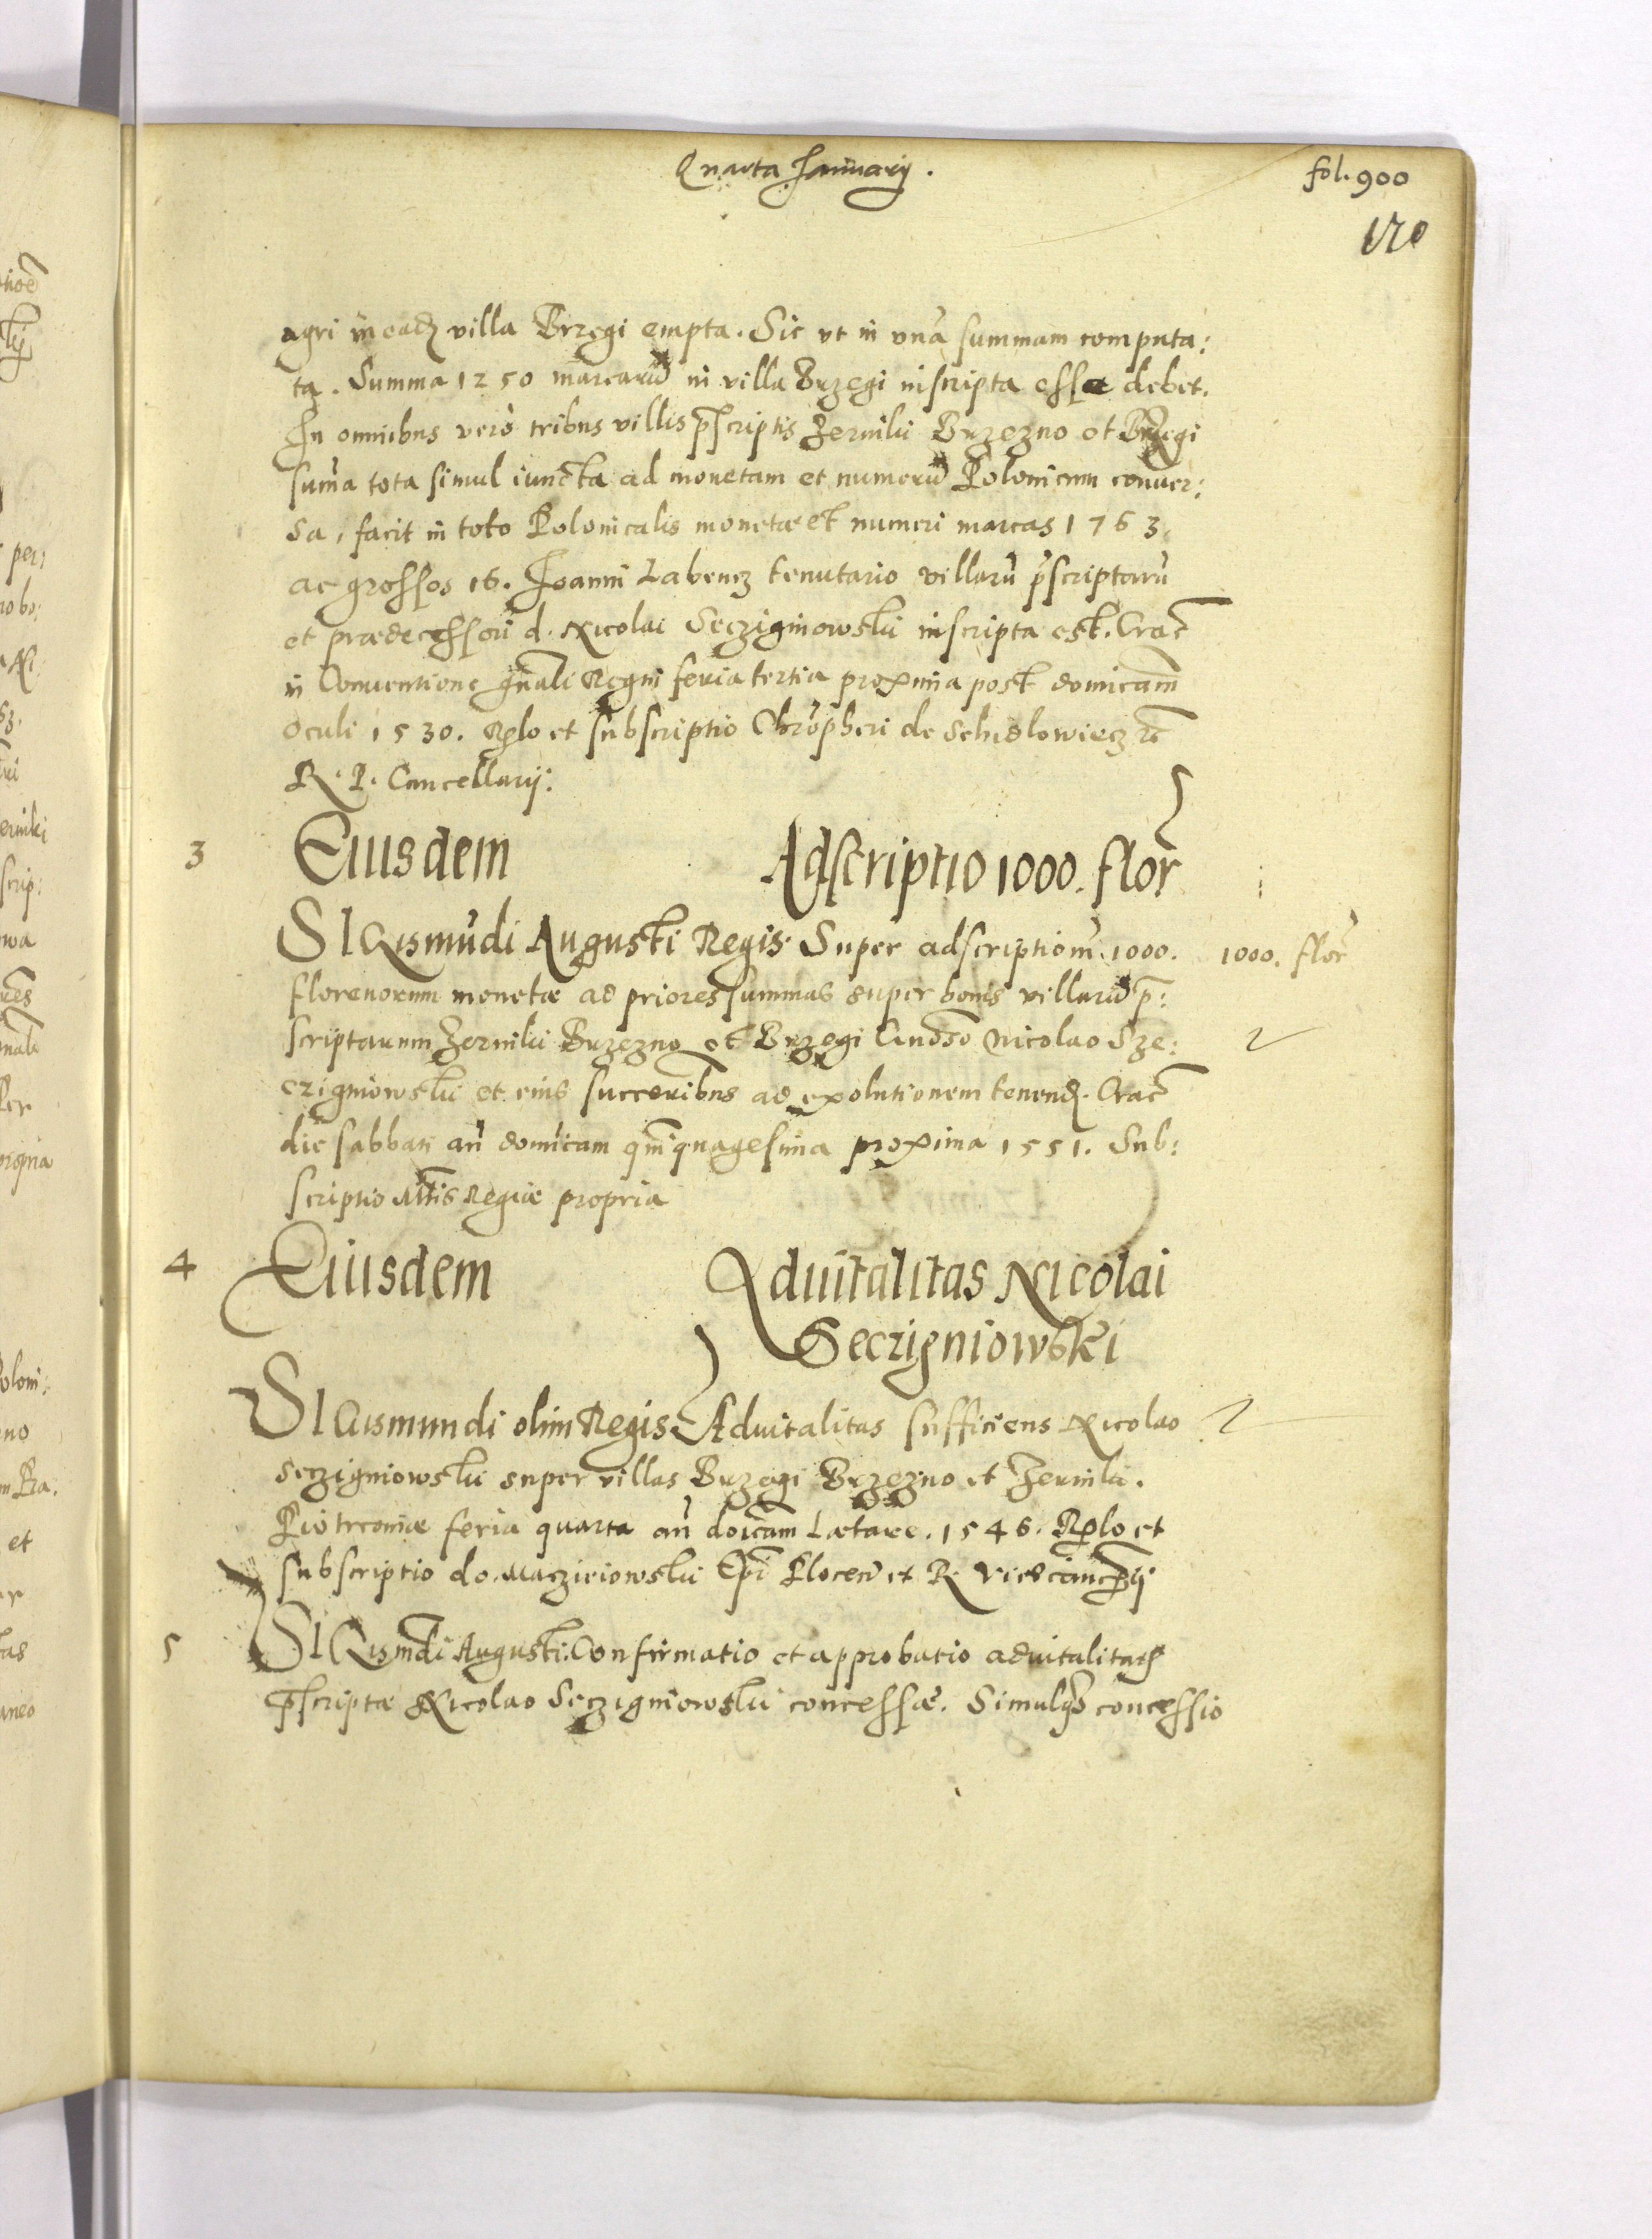 Quarta Januarij.
fol. 900
170
agri in eadꝫ villa Brzegi empta. Sic vt in vnã summam computa:
ta. Summa 1250 marcarũ in villa Brzegi inscripta esse debet.
In omnibus verò tribus villis p̃scriptis Zerniki Brzezno et Brzegi
sum̃a tota simul iuncta ad monetam et numerũ Polonicum conuer:
sa, facit in toto Polonicalis monetæ et numeri marcas 1763.
ac grossos 16. Joanni Labencz tenutario villarũ p̃scriptarũ
et prædecessori d. Nicolai Seczigniowski inscripta est. Crac̃
in Conuentione gñali Regni feria tertia proxima post domicam̃
Oculi 1530. Rꝑlo et subscriptio Chrõpheri de Schidlowiecz ꝛc̃
R. P. Cancellarij:
3 Eiusdem Adscriptio 1000. flor̃
SIGismũdi Augusti Regis. Super adscriptionẽ 1000. 1000. flor̃
florenorum monetæ ad priores summas super bonis villarũ p̃:
scriptarum Zerniki Brzezno et Brzegi Gnõso Nicolao Sze:
czigniowski et eius succeribus ad exolutionem tenendꝫ. Crac̃
die sabbati añ domicam quĩquagesima proxima 1551. Sub:
scriptio Mttis Regiæ propria
4 Eiusdem Aduitalitas Nicolai
Seczigniowski
SIGismundi olim Regis. Aduitalitas sufficiens Nicolao
Seczigniowski super villas Brzegi Brzezno et Zerniki.
Piotrcouiæ feria quarta añ doicam̃ Lætare. 1546. Rꝑlo et
subscriptio do. Maczieiowski Epĩ Plocen̄ et R. Vicecanc̃rij
5 SIGismd̃i Augusti. Confirmatio et approbatio aduitalitatis
p̃scriptæ Nicolao Seczigniowski concessæ. Simulqꝫ concessio